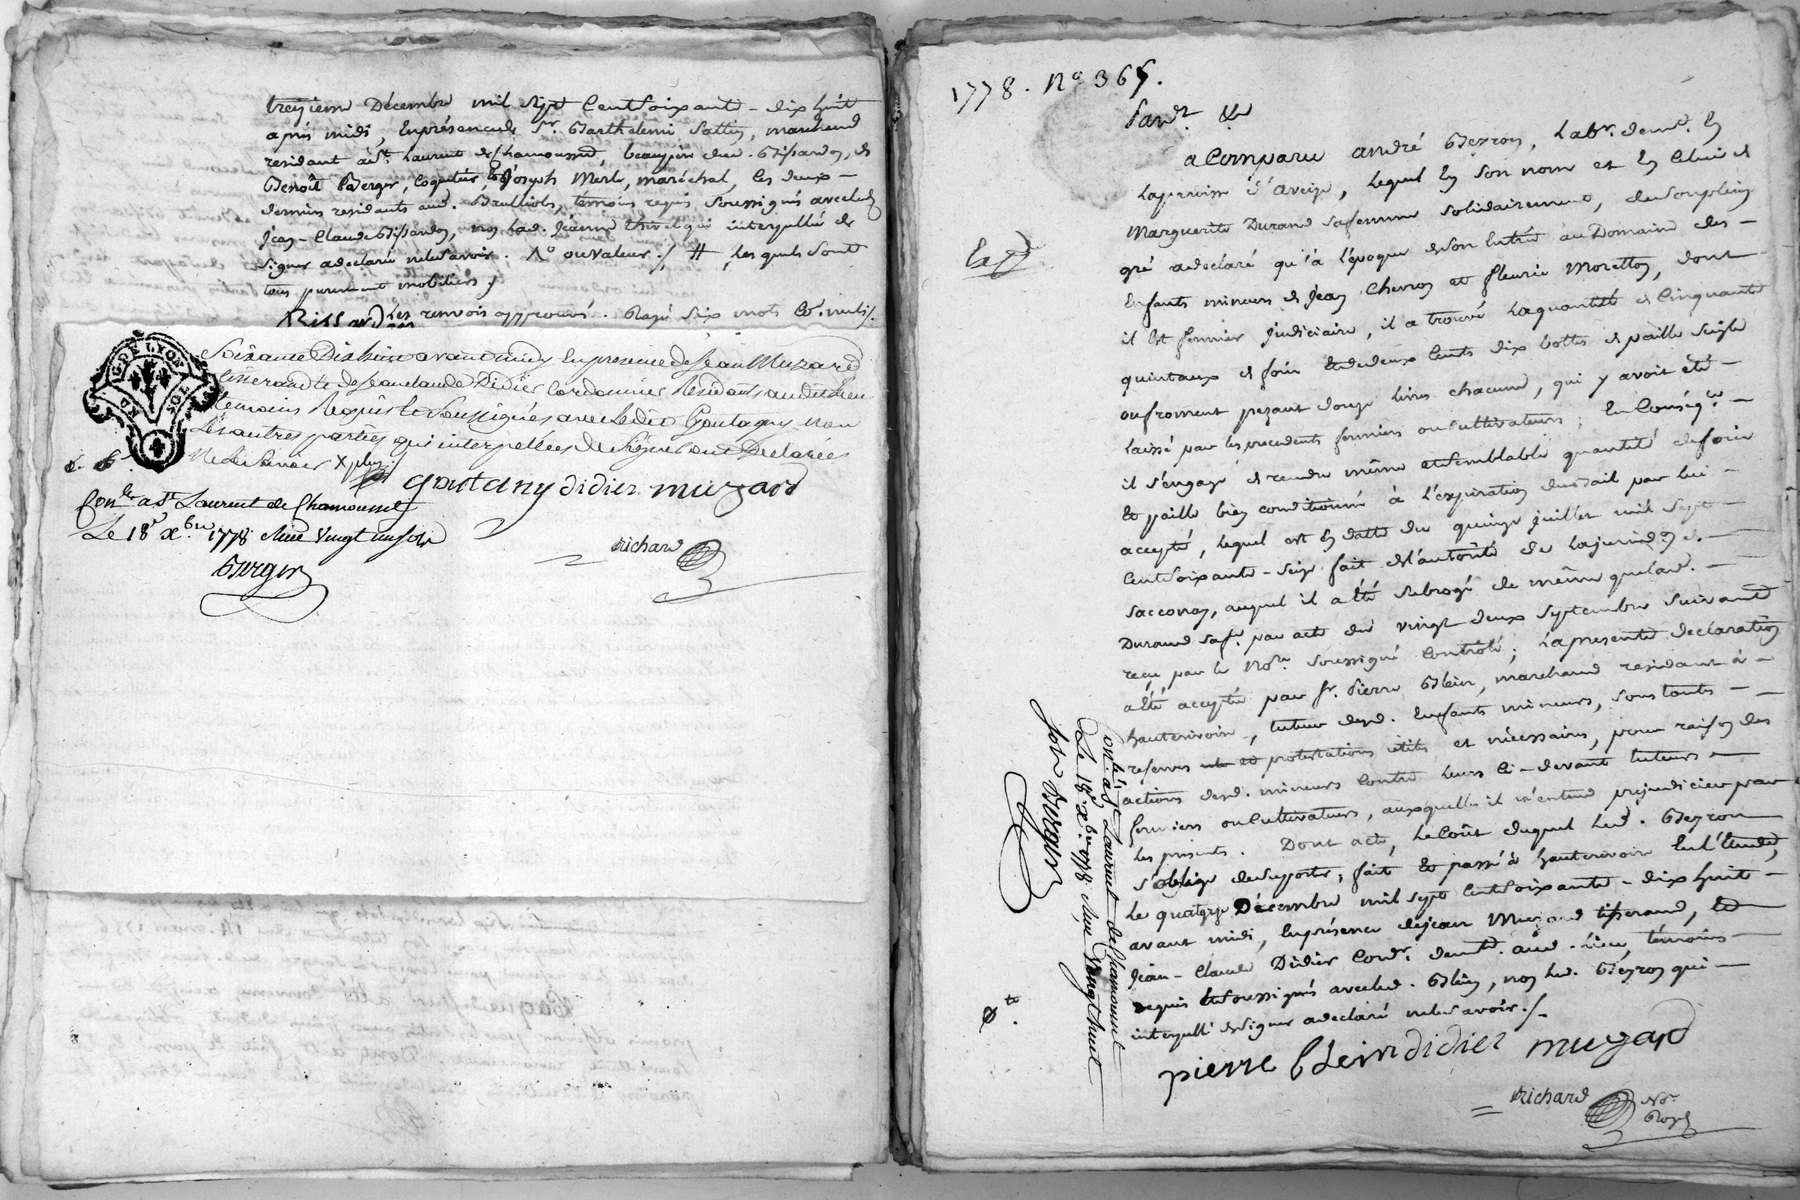 treizieme Décembre mil sept Cent soixante-dix huit
après midi, En présence de Sr. Barthelemi Sattin, marchand
residant à St. Laurent de Chamousset, beaupère dud. Bissardon, de
Benoît Berger, Coquetier, et Joseph Merle, maréchal, les deux
derniers residants aud. Brullioles, témoins requis, soussignés avec led.
Jean-Claude Bissardon, non lad. Jeanne thivel qui interpellée de
signer a declaré ne le savoir. ou valeur ./. # Lesquels sont
tous purement mobiliers,
Les renvois approuvés. Rayé six mots
Soixante Dixhuit avant midy En presence de Jean Muzard
tisserand et de Jean claude Didier Cordonnier Residants audit lieu
temoins Requis et Soussignés avec Ledit Goutagny non
Les autres parties qui interpellées de Signer ont Declarées
Ne Le Savoir X plus ./.
goutany didier muzard
Conlé. a St Laurent de Chamousset
Le 18 xbre. 1778
Berger
richard
GDE LYON
1778. No 365.
a Comparu andré Beyron, Labr. demt. En
la parroisse d'aveize, lequel En son nom et En Celui de
Marguerite Durand sa femme solidairement, de son plein
gré a declaré qu'à l'époque de son Entrée au Domaine des
Enfants mineurs de Jean Chevron et fleurie Moretton, dont
il Est fermier judiciaire, il a trouvé la quantité de Cinquante
quintaux de foin Et de deux Cents dix bottes de paille seigle
ou froment pezant douze livres chacune, qui y avoit été
laissé par les precedents fermiers ou Cultivateurs; En Conséqce.
il s'engage de rendre même et semblable quantité de foin
Et paille bien conditionné à l'expiration du bail par lui
accepté, lequel est En datte du quinze juillet mil sept
Cent soixante-seize fait de l'autorité de la jurisdon. de
Sacconay, auquel il a été subrogé de même que lad.
Durand sa fe. par acte du vingt deux septembre suivant
reçu par le Nore. soussigné Contrôlé; La presente declaration
a été acceptée par Sr. Pierre Blein, marchand residant à
hauterivoire, tuteur desd. Enfants mineurs, sous toutes
reserves et protestations utiles et nécessaires, pour raison des
actions desd. mineurs Contre leurs Ci-devant tuteurs
fermiers ou Cultivateurs, auxquelles il n'entend prejudicier par
les presentes. Dont acte, le Coût duquel led. Beyron
s'oblige de supporter; fait Et passé à hauterivoire En l'Etude,
Le quatorze Décembre mil sept Cent soixante-dix huit
avant midi, En présence de jean Muzard tisserand, Et
Jean-Claude Didier Cordr. demts. aud. lieu, témoins
requis Et soussignés avec led. Blein, non led. Beyron qui
interpellé de signer a declaré ne le savoir ./.
pierre blein didier muzard
richard Nore.
Royal
Conlé. a St Laurent de Chamousset
Le 18 xbre. 1778 vingt huit
sols Berger